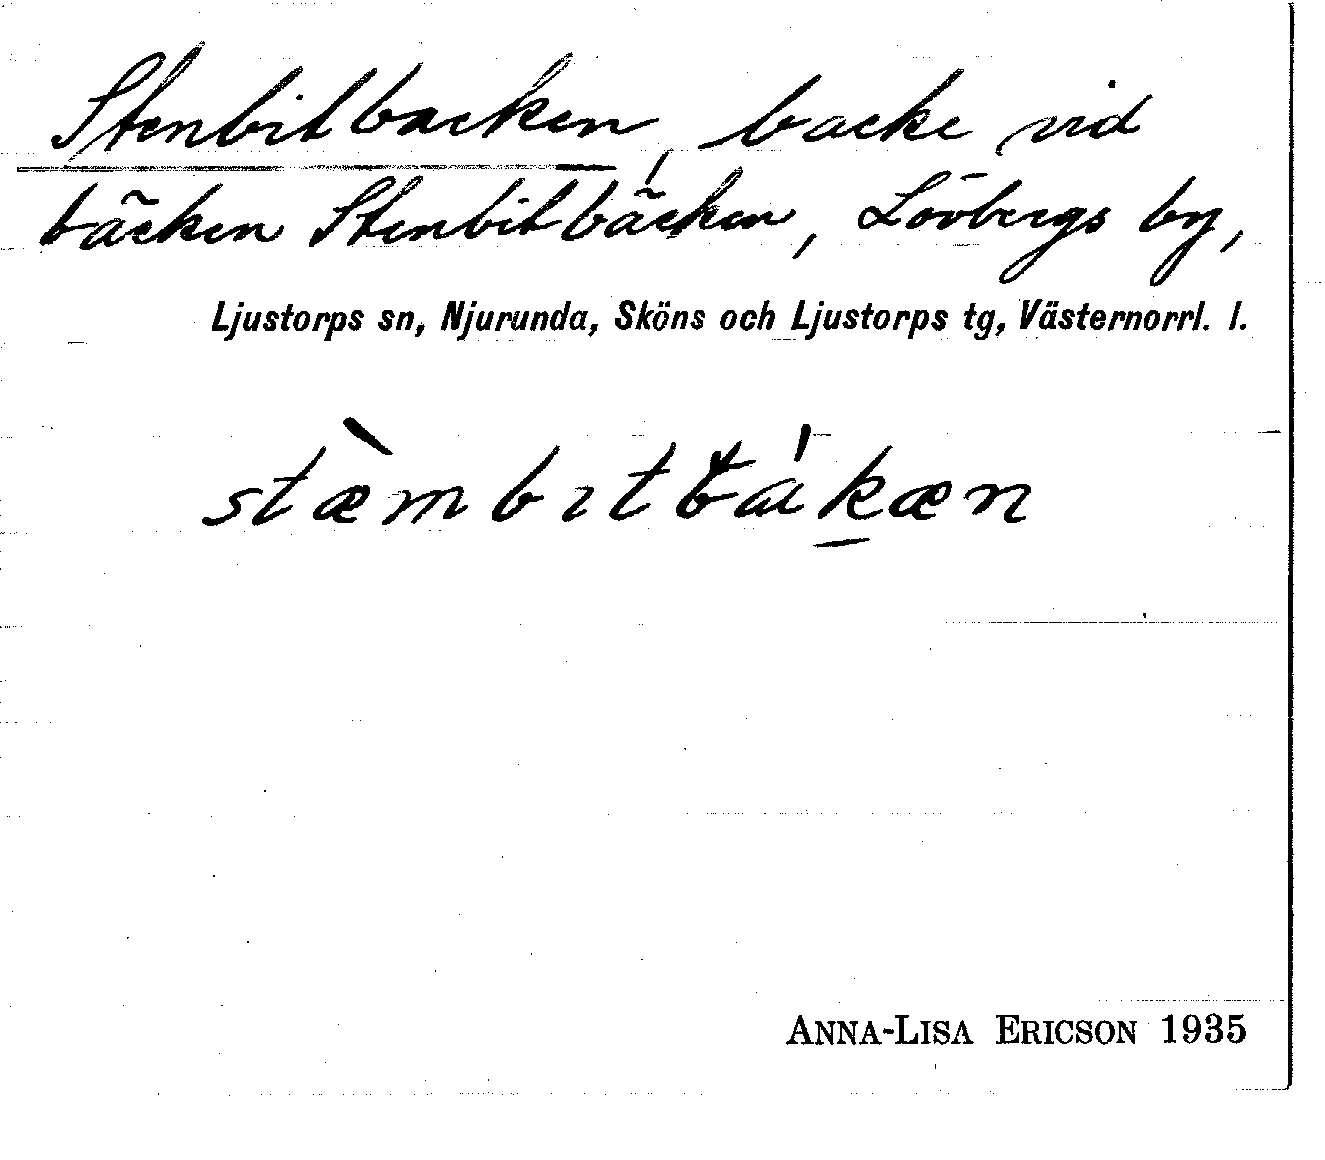 Stenbitbacken, backe vid
bäcken Stenbitbäcken, Lövbergs by,
Ljustorps sn, Njurunda, Sköns och Ljustorps tg, Västernorrl. l.
stæ̀mbɪtbákæn
ANNA-LISA ERICSON 1935